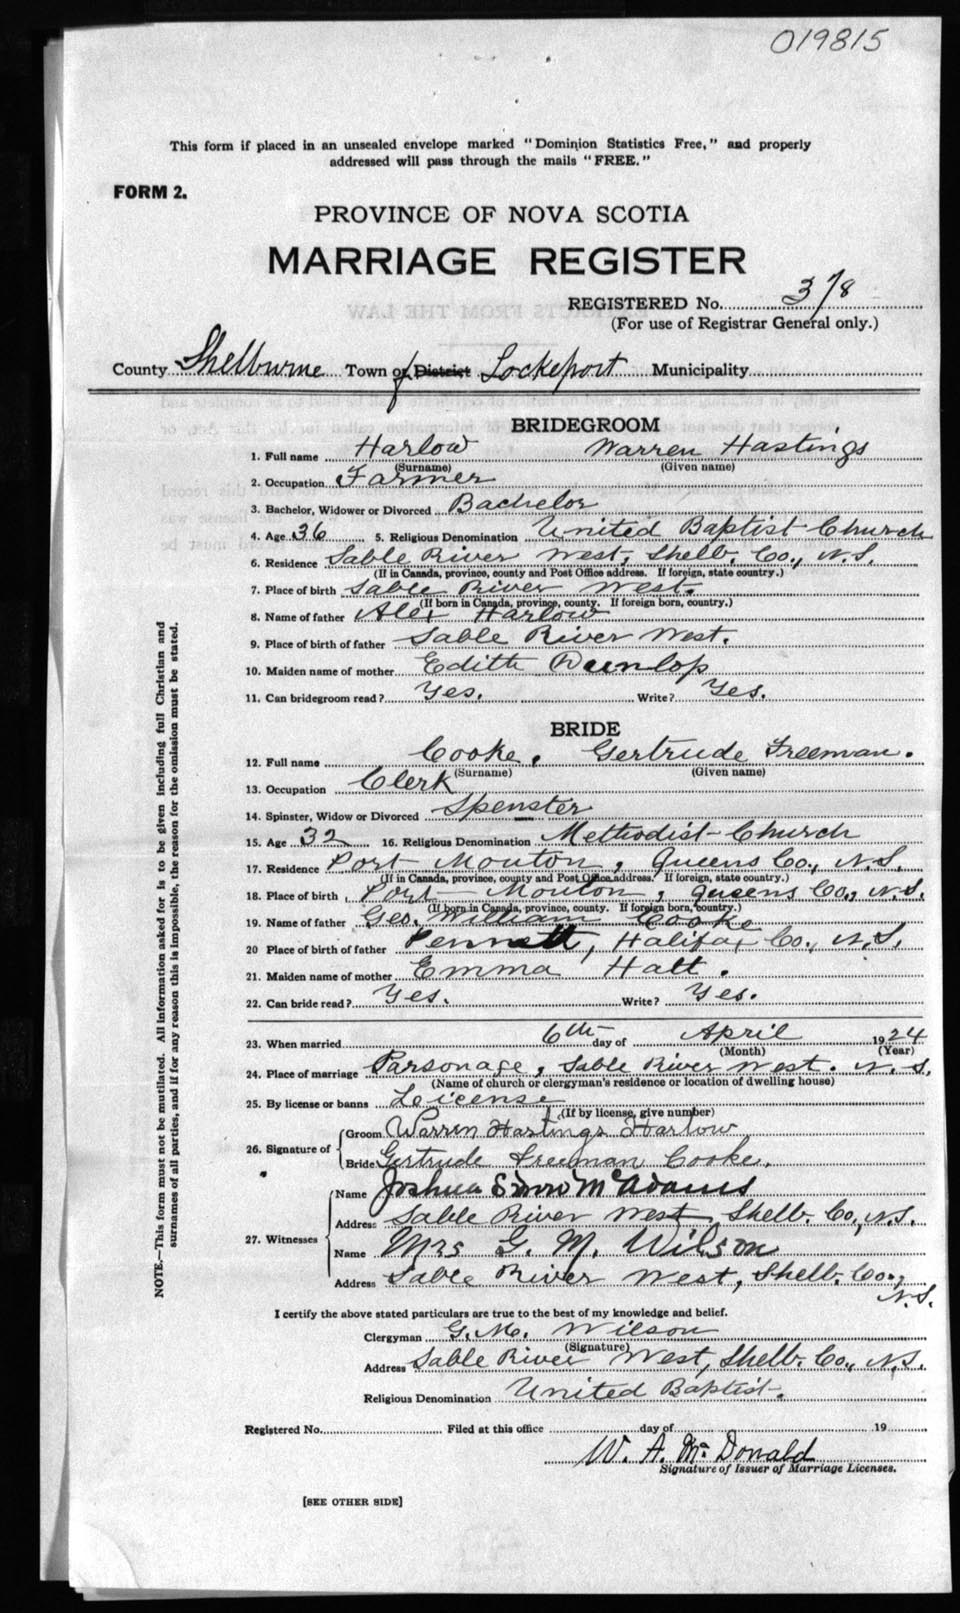 019815
This form if placed in an unsealed envelope marked "Dominion Statistics Free," and properly
addressed will pass through the mails "FREE."
FORM 2.
PROVINCE OF NOVA SCOTIA
MARRIAGE REGISTER
REGISTERED No. 378
(For use of Registrar General only.)
County Shelburne Town of District Lockeport Municipality
BRIDEGROOM
1. Full name Harlow Warren Hastings
(Surname) (Given name)
2. Occupation Farmer
3. Bachelor, Widower or Divorced Bachelor
4. Age 36 5. Religious Denomination United Baptist Church
6. Residence Sable River West, Shelb. Co., N.S.
(If in Canada, province, county and Post Office address. If foreign, state country.)
7. Place of birth Sable River West.
(If born in Canada, province, county. If foreign born, country.)
8. Name of father Alex Harlow
9. Place of birth of father Sable River West.
10. Maiden name of mother Edith Dunlop
11. Can bridegroom read? Yes. Write? Yes.
BRIDE
12. Full name Cooke, Gertrude Freeman.
(Surname) (Given name)
13. Occupation Clerk
14. Spinster, Widow or Divorced Spenster
15. Age 32 16. Religious Denomination Methodist Church
17. Residence Port Mouton, Queens Co., N.S.
(If in Canada, province, county and Post Office address. If foreign, state country.)
18. Place of birth Port Mouton, Queens Co., N.S.
(If born in Canada, province, county. If foreign born, country.)
19. Name of father Geo. William Cooke
20 Place of birth of father Pennett, Halifax Co., N.S.
21. Maiden name of mother Emma Hatt.
22. Can bride read? Yes. Write? Yes.
23. When married 6th day of April 1924
(Month) (Year)
24. Place of marriage Parsonage, Sable River West. N.S.
(Name of church or clergyman's residence or location of dwelling house)
25. By license or banns Leicense
(If by license, give number)
26. Signature of Groom Warren Hastings Harlow
Bride Gertrude Freeman Cooke.
27. Witnesses Name Joshua Snow McAdams
Address Sable River West, Shelb. Co., N.S.
Name Mrs G. M. Wilson
Address Sable River West, Shelb. Co., N.S.
I certify the above stated particulars are true to the best of my knowledge and belief.
Clergyman G. M. Wilson
(Signature)
Address Sable River West, Shelb. Co., N.S.
Religious Denomination United Baptist.
Registered No. Filed at this office day of 19
W. A. McDonald
Signature of Issuer of Marriage Licenses.
[SEE OTHER SIDE]
NOTE.—This form must not be mutilated. All information asked for is to be given including full Christian and
surnames of all parties, and if for any reason this is impossible, the reason for the omission must be stated.